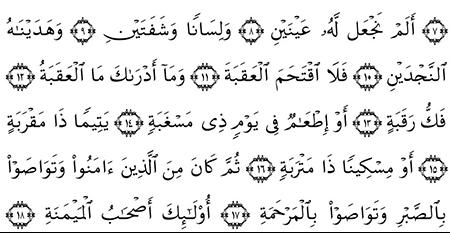 ﴿٧﴾ أَلَمْ نَجْعَل لَّهُۥ عَيْنَيْنِ ﴿٨﴾ وَلِسَانًا وَشَفَتَيْنِ ﴿٩﴾ وَهَدَيْنَٰهُ
ٱلنَّجْدَيْنِ ﴿١٠﴾ فَلَا ٱقْتَحَمَ ٱلْعَقَبَةَ ﴿١١﴾ وَمَآ أَدْرَىٰكَ مَا ٱلْعَقَبَةُ ﴿١٢﴾
فَكُّ رَقَبَةٍ ﴿١٣﴾ أَوْ إِطْعَٰمٌ فِى يَوْمٍ ذِى مَسْغَبَةٍ ﴿١٤﴾ يَتِيمًا ذَا مَقْرَبَةٍ
﴿١٥﴾ أَوْ مِسْكِينًا ذَا مَتْرَبَةٍ ﴿١٦﴾ ثُمَّ كَانَ مِنَ ٱلَّذِينَ ءَامَنُوا۟ وَتَوَاصَوْا۟
بِٱلصَّبْرِ وَتَوَاصَوْا۟ بِٱلْمَرْحَمَةِ ﴿١٧﴾ أُو۟لَٰٓئِكَ أَصْحَٰبُ ٱلْمَيْمَنَةِ ﴿١٨﴾